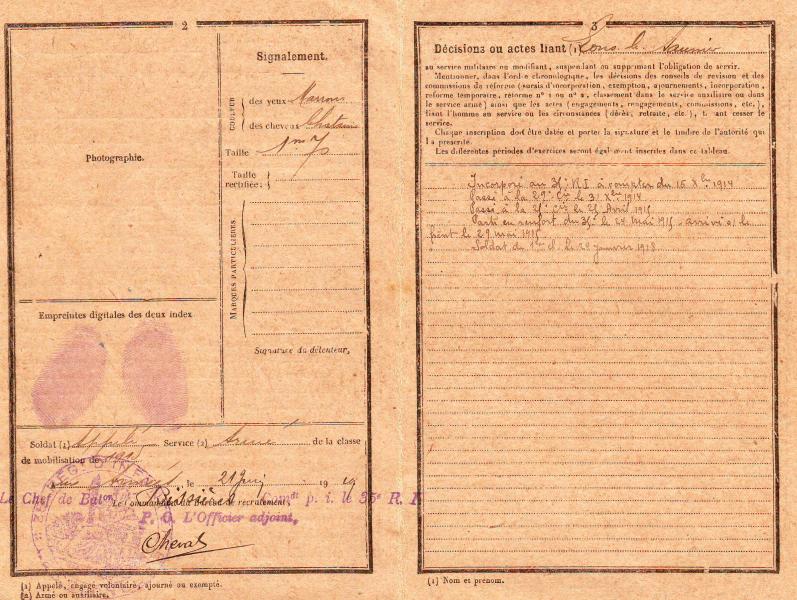 2
Signalement.
COULEUR
des yeux Marrons
des cheveux Chatains
Taille 1m 7
Taille
rectifiée:
MARQUES PARTICULIÈRES
Photographie.
Empreintes digitales des deux index
Signature du détenteur,
Soldat (1) Appelé Service (2) Armé de la classe
de mobilisation de
, le 21 Juin 1919
Le Chef de Baton Comdt p. i. le 35e R. I
Le Commandant du Bureau de recrutement,
P. O. L'Officier adjoint,
Cheval
(1) Appelé, engagé volontaire, ajourné ou exempté.
(2) Armé ou auxiliaire.
3
Décisions ou actes liant (1) Lons le Saunier
au service militaire ou modifiant, suspendant ou supprimant l'obligation de servir.
Mentionner, dans l'ordre chronologique, les décisions des conseils de revision et des
commissions de réforme (sursis d'incorporation, exemption, ajournements, incorporation,
réforme temporaire, réforme n° 1 ou n° 2, classement dans le service auxiliaire ou dans
le service armé) ainsi que les actes (engagements, rengagements, commissions, etc.),
liant l'homme au service ou les circonstances (décès, retraite, etc.), faisant cesser le
service.
Chaque inscription doit être datée et porter la signature et le timbre de l'autorité qui
l'a prescrite.
Les différentes périodes d'exercices seront également inscrites dans ce tableau.
Incorporé au 35e R I à compter du 15 Xbre 1914
Passé à la 29e Cie le 31 Xbre 1914
Passé à la 25e Cie le 25 Avril 1915
Parti en renfort du 35e le 24 Mai 1915 arrivé s/ le
front le 29 mai 1915
Soldat de 1re cl. le 20 janvier 1918
(1) Nom et prénom.